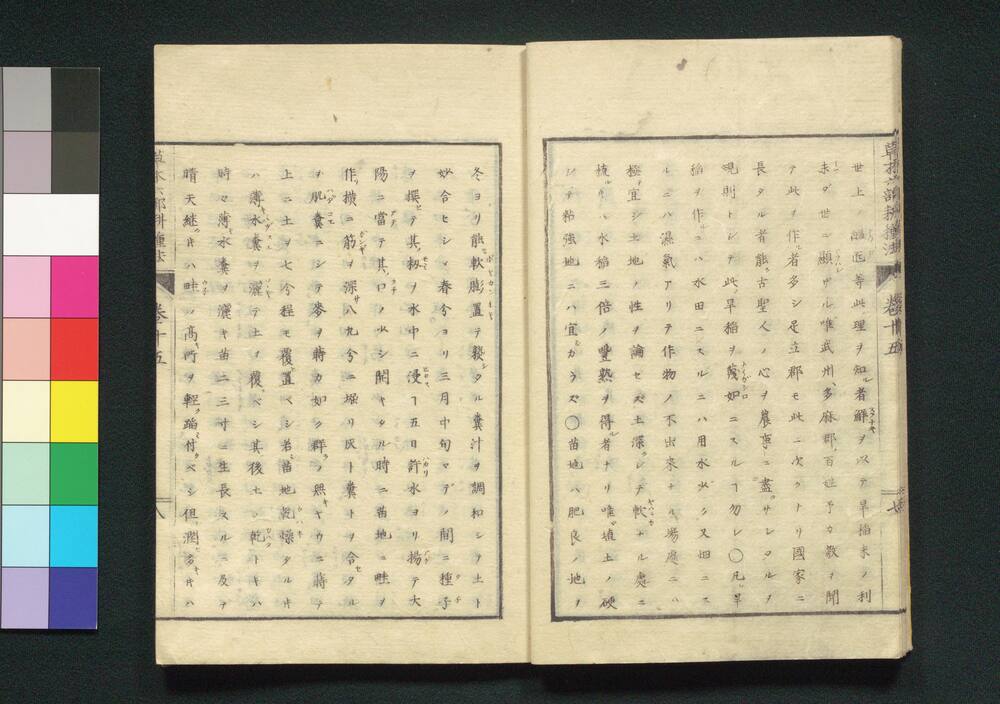 草木六部耕種法
卷十五
七
世上ノ
等此理ヲ知ル者鮮ヲ以テ旱稲未ノ利
未ダ世ニ顯ハレザル唯武州多麻郡百姓予カ敎ヲ聞
テ此ヲ作ル者多シ足立郡モ此ニ次クトリ國家ニ
長タル者能ク古聖人ノ心ヲ農事ニ盡サレタルヲ
規則トシテ此旱稲ヲ蔑如ニスルヿ勿レ〇凡ソ旱
稲ヲ作ルハ水田ニスルニハ用水少ク又畑ニス
ルニハ濕氣アリテ作物ノ不出來ナル場處ニハ
極宜シ土地ノ性ヲ論セズ土深クシテ軟ナル處ニ
植レハ水稲三倍ノ豐熟ヲ得ル者ナリ唯埴土ノ硬
シテ粘強地ニハ宜シカラズ〇苗地ハ肥良ノ地ヲ
冬ヨリ能軟膨置テ
タル糞汁ヲ調和シヲ土ト
合セシメ春分ヨリ三月中旬マデノ間ニ種子
ヲ撰テ其籾ヲ水中ニ浸ヿ五日許水ヨリ揚テ大
陽ニ當テ其口ノ少シ開キタル時ニ苗地ニ畦ヲ
作リ横ニ筋ヲ深サ八九分ニ堀リ灰ト糞トヲ合セタル
ヲ肌糞ニシテ麥ヲ蒔カ如ク群ラノ無キヤウニ蒔テ
上ニ土ヲ七分程モ覆置ベシ若苗地乾燥タル片
ハ薄水糞ヲ灑テ土ヲ覆ベシ其後土ノ乾トキハ
時々薄水糞ヲ灑キ苗二三寸ニ生長スルニ及テ
晴天継キハ畦ノ高所ヲ輕ク踏付ベシ但潤多キハ
草木六部耕種法
卷十五
八